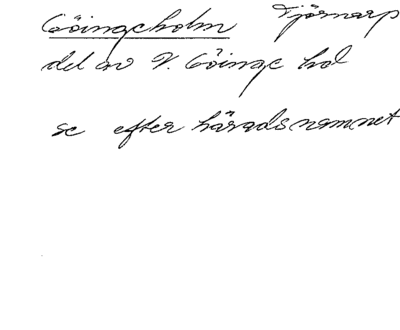 Göingeholm Tjörnarp
del av V. Göinge hd
se efter häradsnamnet